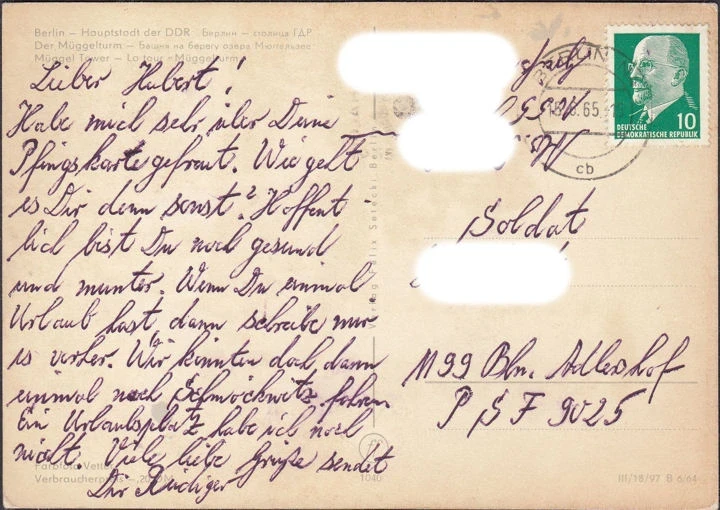 Berlin – Hauptstadt der DDR Берлин – столица ГДР
Der Müggelturm – Башня на берегу озера Мюггельзее
Müggel Tower – La tour «Müggelturm»
Lieber Hubert!
Habe mich sehr über Deine
Pfingskarte gefraut. Wie geht
es Dir denn sonst? Hoffent
lich bist Du noch gesund
und munter. Wenn Du einmal
Urlaub hast, dann schreibe mir
es vorher. Wir könnten doch dann
einmal nach Schmöckwitz fahren
Ein Urlaubsplatz habe ich noch
nicht. Viele liebe Grüße sendet
Dir Rüdiger
Farbfoto Vetter
Verbraucherpreis –,20 DM
Verlag Felix Setecki Berlin
1040
BERLIN
65
cb
10
DEUTSCHE
DEMOKRATISCHE REPUBLIK
Soldat
1199 Bln. Adlershof
PSF 9025
III/18/97 B 6/64